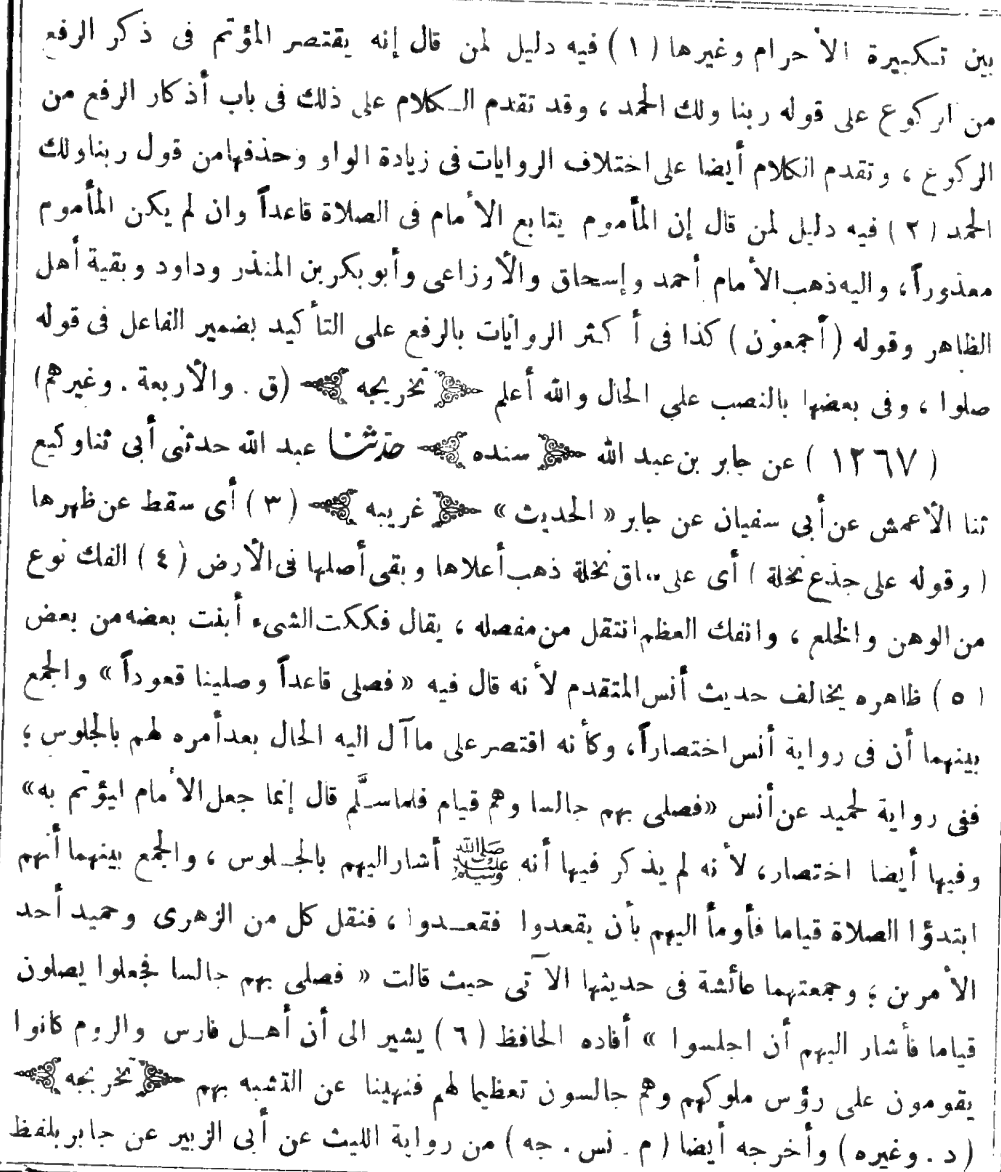 بين تكبيرة الأحرام وغيرها (١) فيه دليل لمن قال إنه يقتصر المؤتم فى ذكر الرفع
من الركوع على قوله ربنا ولك الحمد ، وقد تقدم الكلام على ذلك فى باب أذكار الرفع من
الركوع ، وتقدم الكلام أيضا على اختلاف الروايات فى زيادة الواو وحذفها من قول ربنا ولك
الحمد (٢) فيه دليل لمن قال إن المأموم يتابع الأمام فى الصلاة قاعداً وان لم يكن المأموم
معذوراً، واليه ذهب الأمام أحمد وإسحاق والأوزاعى وأبو بكر بن المنذر وداود وبقية أهل
الظاهر وقوله (أجمعون) كذا فى أكثر الروايات بالرفع على التأكيد بضمير الفاعل فى قوله
صلوا ، وفى بعضها بالنصب على الحال والله أعلم تخريجه (ق . والأربعة . وغيرهم)
(١٢٦٧) عن جابر بن عبد الله سنده حدثنا عبد الله حدثنى أبى ثنا وكيع
ثنا الأعمش عن أبى سفيان عن جابر « الحديث » غريبه (٣) أى سقط عن ظهرها
(وقوله على جذع نخلة) أى على ساق نخلة ذهب أعلاها وبقى أصلها فى الأرض (٤) الفك نوع
من الوهن والخلع ، وانفك العظم انتقل من مفصله ، يقال فككت الشىء أبنت بعضه من بعض
(٥) ظاهره يخالف حديث أنس المتقدم لأنه قال فيه « فصلى قاعداً وصلينا قعوداً » والجمع
بينهما أن فى رواية أنس اختصاراً، وكأنه اقتصر على ما آل اليه الحال بعد أمره لهم بالجلوس ؛
ففى رواية لحميد عن أنس «فصلى بهم جالسا وهم قيام فلما سلَّم قال إنما جعل الأمام ليؤتم به»
وفيها أيضا اختصار، لأنه لم يذكر فيها أنه ﷺ أشار اليهم بالجلوس ، والجمع بينهما أنهم
ابتدؤا الصلاة قياما فأومأ اليهم بأن يقعدوا فقعدوا ، فنقل كل من الزهرى وحميد أحد
الأمرين ؛ وجمعتهما عائشة فى حديثها الآتى حيث قالت « فصلى بهم جالسا فجعلوا يصلون
قياما فأشار اليهم أن اجلسوا » أفاده الحافظ (٦) يشير الى أن أهل فارس والروم كانوا
يقومون على رؤس ملوكهم وهم جالسون تعظيما لهم فنهينا عن التشبه بهم تخريجه
(د . وغيره) وأخرجه أيضا (م . نس . جه) من رواية الليث عن أبى الزبير عن جابر بلفظ